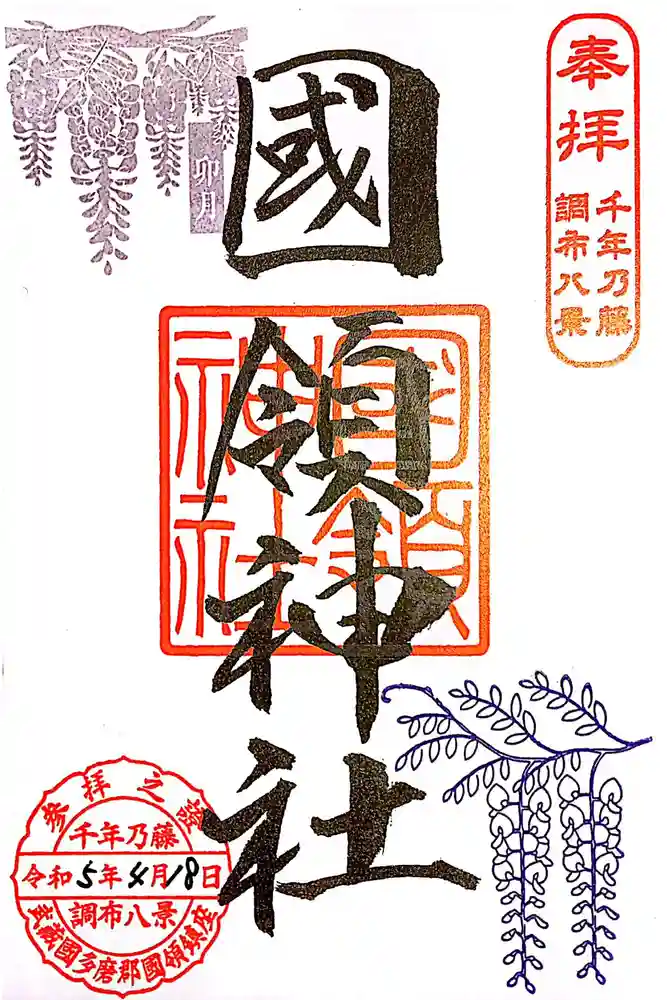 奉拝
千年乃藤
調布八景
國領神社
卯月
國領
神社
参拝之證
千年乃藤
令和5年4月18日
調布八景
武蔵國多磨郡國領鎮座